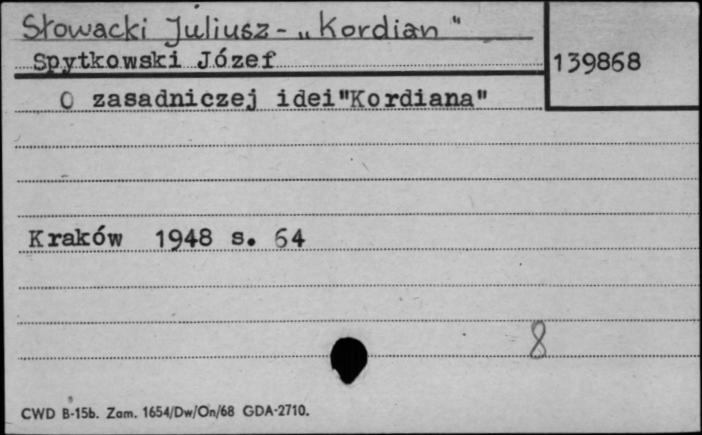 Słowacki Juliusz - „Kordian"
Spytkowski Józef
139868
O zasadniczej idei"Kordiana"
Kraków 1948 s. 64
8
CWD B-15b. Zam. 1654/Dw/On/68 GDA-2710.